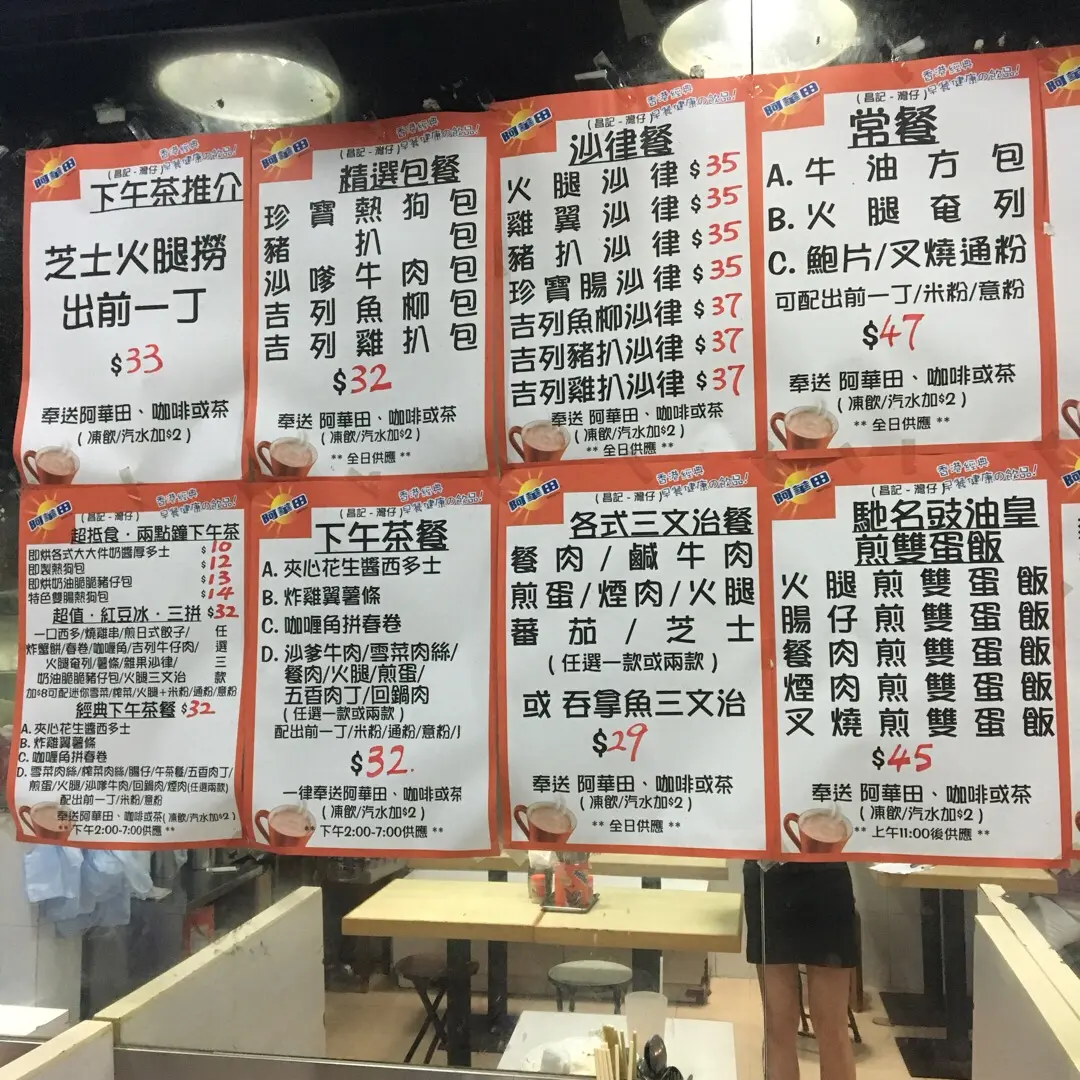 阿華田
香港經典
早餐健康の飲品!
下午茶推介
芝士火腿撈
出前一丁
$33
奉送阿華田、咖啡或茶
(凍飲/汽水加$2)
阿華田
香港經典
早餐健康の飲品!
(昌記-灣仔)
精選包餐
珍寶熱狗包
豬扒包
沙嗲牛肉包
吉列魚柳包
吉列雞扒包
$32
奉送 阿華田、咖啡或茶
(凍飲/汽水加$2)
** 全日供應 **
阿華田
香港經典
早餐健康の飲品!
(昌記-灣仔)
沙律餐
火腿沙律 $35
雞翼沙律 $35
豬扒沙律 $35
珍寶腸沙律 $35
吉列魚柳沙律 $37
吉列豬扒沙律 $37
吉列雞扒沙律 $37
奉送 阿華田、咖啡或茶
(凍飲/汽水加$2)
** 全日供應 **
阿華田
香港經典
早餐健康の飲品!
(昌記-灣仔)
常餐
A. 牛油方包
B. 火腿奄列
C. 鮑片/叉燒通粉
可配出前一丁/米粉/意粉
$47
奉送 阿華田、咖啡或茶
(凍飲/汽水加$2)
** 全日供應 **
阿華田
香港經典
早餐健康の飲品!
(昌記-灣仔)
超抵食．兩點鐘下午茶
即烘各式大大件奶醬厚多士 $10
即製熱狗包 $12
即烘奶油脆脆豬仔包 $13
特色雙腸熱狗包 $14
超值．紅豆冰．三拼 $32
一口西多/燒雞串/煎日式餃子/ 任
炸蟹餅/春卷/咖喱角/吉列牛仔肉/ 選
火腿奄列/薯條/雜果沙律/ 三
奶油脆脆豬仔包/火腿三文治 款
加$8可配迷你雪菜/榨菜/火腿+米粉/通粉/意粉
經典下午茶餐 $32
A. 夾心花生醬西多士
B. 炸雞翼薯條
C. 咖喱角拼春卷
D. 雪菜肉絲/榨菜肉絲/腸仔/午茶餐/五香肉丁/
煎蛋/火腿/沙嗲牛肉/回鍋肉/煙肉(任選兩款)
配出前一丁/米粉/意粉
奉送阿華田、咖啡或茶(凍飲/汽水加$2)
** 下午2:00-7:00供應 **
阿華田
香港經典
早餐健康の飲品!
(昌記-灣仔)
下午茶餐
A. 夾心花生醬西多士
B. 炸雞翼薯條
C. 咖喱角拼春卷
D. 沙爹牛肉/雪菜肉絲/
餐肉/火腿/煎蛋/
五香肉丁/回鍋肉
(任選一款或兩款)
配出前一丁/米粉/通粉/意粉/
$32.
一律奉送阿華田、咖啡或茶
(凍飲/汽水加$2)
** 下午2:00-7:00供應 **
阿華田
香港經典
早餐健康の飲品!
(昌記-灣仔)
各式三文治餐
餐肉/鹹牛肉
煎蛋/煙肉/火腿
蕃茄/芝士
(任選一款或兩款)
或 吞拿魚三文治
$29
奉送 阿華田、咖啡或茶
(凍飲/汽水加$2)
** 全日供應 **
阿華田
香港經典
早餐健康の飲品!
(昌記-灣仔)
馳名豉油皇
煎雙蛋飯
火腿煎雙蛋飯
腸仔煎雙蛋飯
餐肉煎雙蛋飯
煙肉煎雙蛋飯
叉燒煎雙蛋飯
$45
奉送 阿華田、咖啡或茶
(凍飲/汽水加$2)
** 上午11:00後供應 **